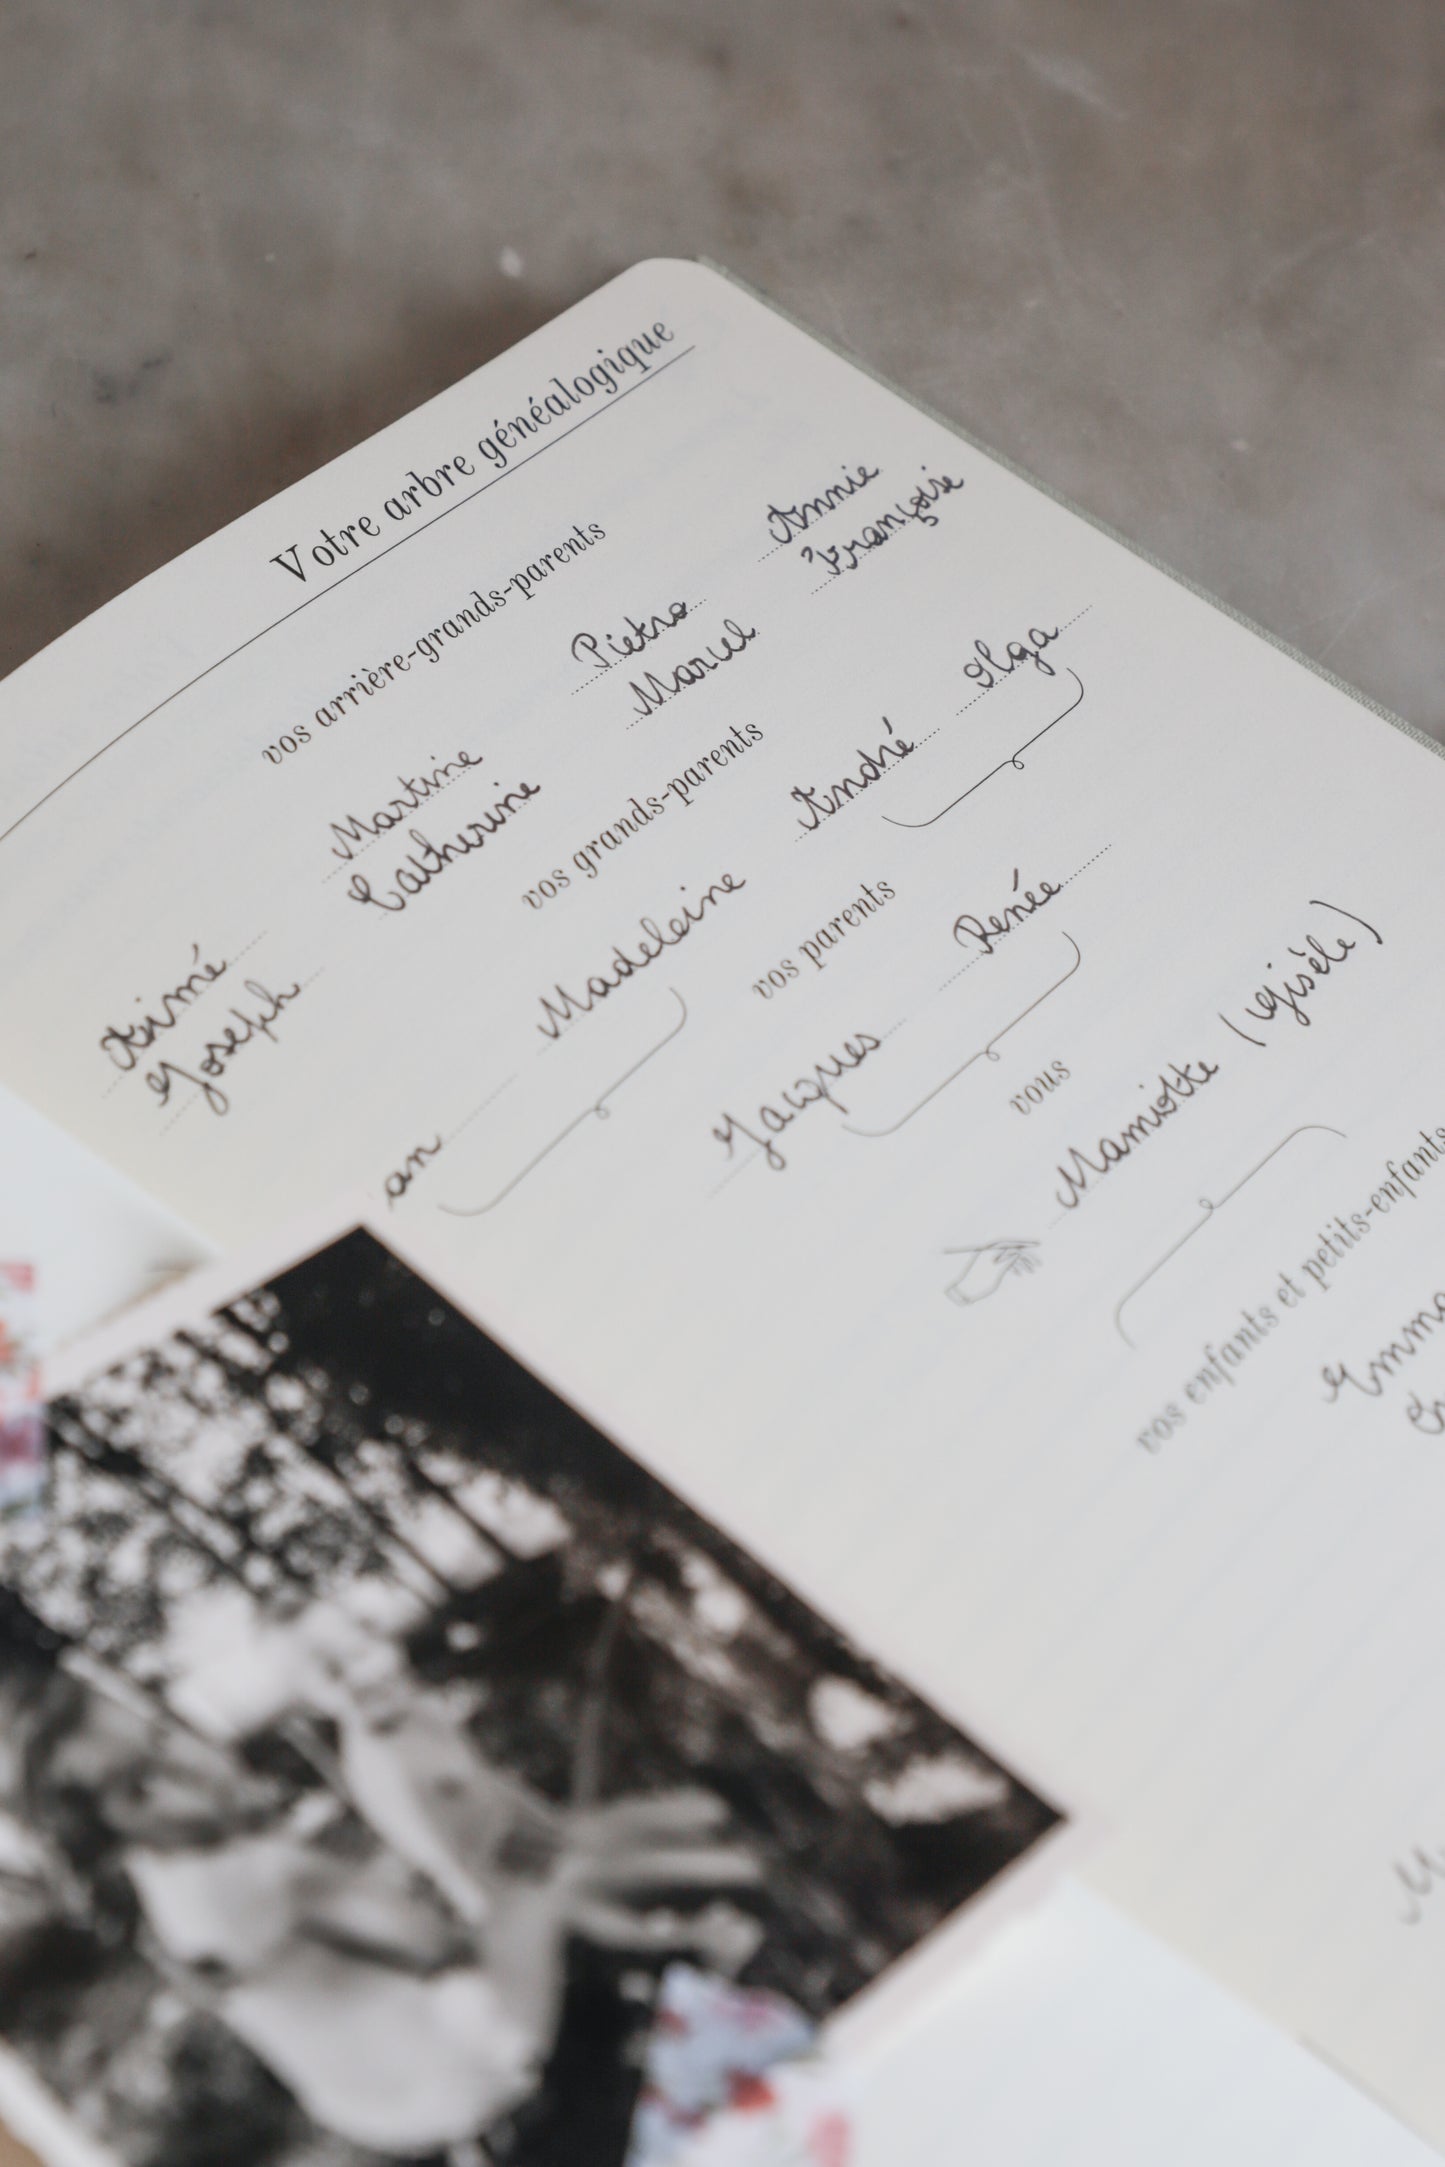 Votre arbre généalogique
vos arrière-grands-parents
Aimé Martine Pietro Annie
Joseph Catherine Marcel Françoise
vos grands-parents
an Madeleine André Olga
vos parents
Jacques Renée
vous
Mamiotte (Gisèle)
vos enfants et petits-enfants
Emma